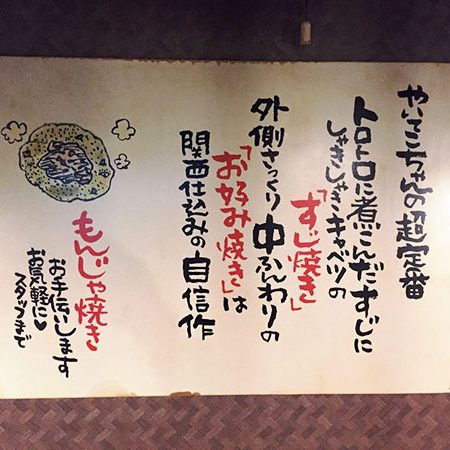 やいこちゃんの超定番
トロトロに煮こんだすじに
しゃきしゃきキャベツの
「すじ焼き」
外側さっくり中ふんわりの
「お好み焼き」は
関西仕込みの自信作
もんじゃ焼き
お手伝いします
お気軽に♥
スタッフまで